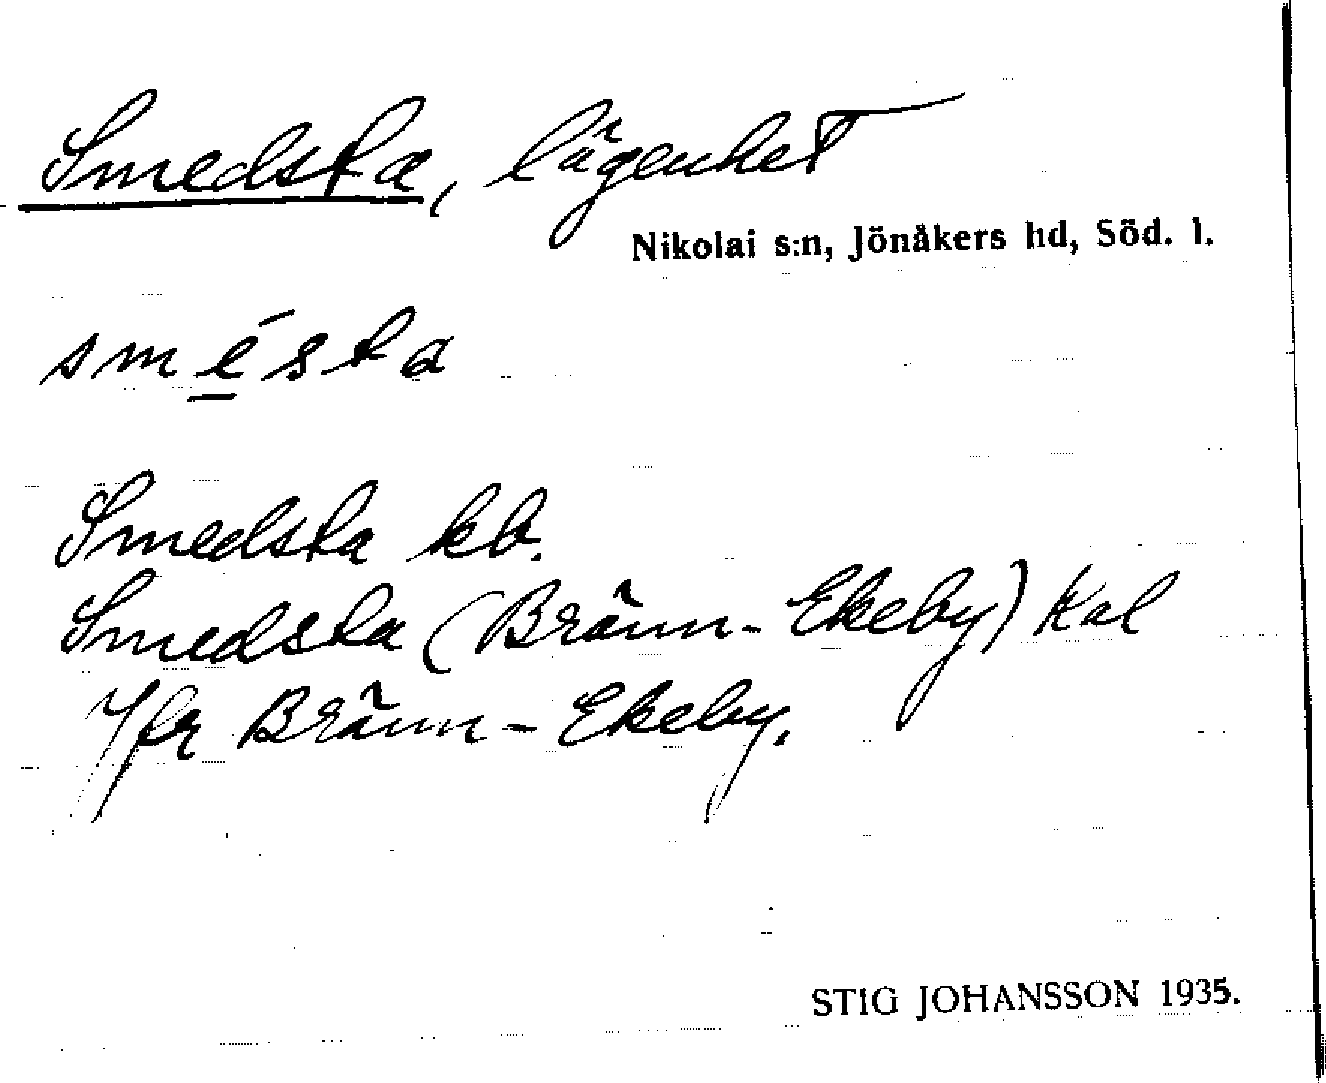 Smedsta, lägenhet
Nikolai s:n, Jönåkers hd, Söd. l.
smé̱sta
Smedsta kb.
Smedsta (Bränn-Ekeby) Kal
Jfr Bränn-Ekeby.
STIG JOHANSSON 1935.